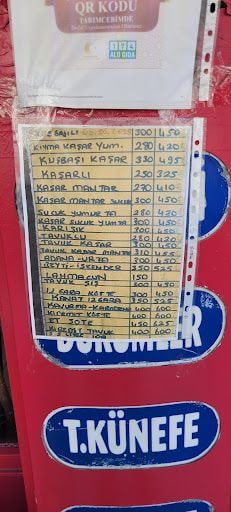 QR KODU
TARIMCEBİMDE
174
ALO GIDA
300 450
KIYMA KAŞAR YUM. 280 420
KUŞBAŞI KAŞAR 330 495
KAŞARLI 250 325
KAŞAR MANTAR 270 410
KAŞAR MANTAR SUCUK 300 450
SUCUK YUMURTA 280 420
KAŞAR SUCUK YUMTA 300 450
KARIŞIK 300 450
TAVUKLU 280 420
TAVUK KAŞAR 300 450
TAVUK KAŞAR MANTAR 310 455
ADANA-URFA 300 450
BEYTİ-İSKENDER 350 525
LAHMACUN 150
TAVUK ŞİŞ 300 450
IZGARA KÖFTE 300 450
KANAT IZGARA 350 525
KAVURMA 400 600
KİREMİT KÖFTE 400 600
ET SOTE 450 625
KİREMİT TAVUK 400 600
DÜRÜMLER
T.KÜNEFE